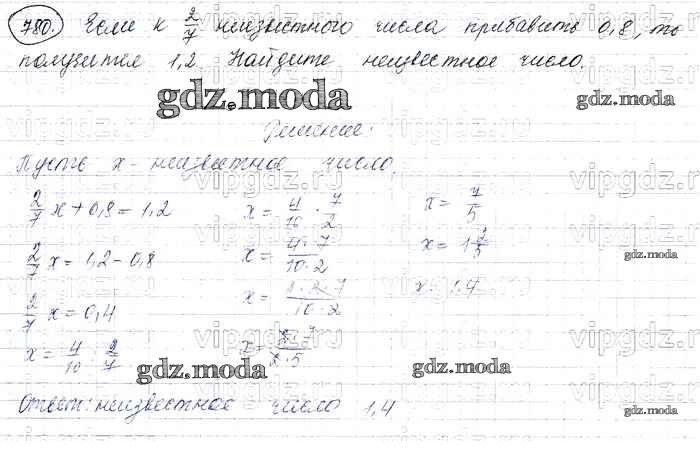 780. Если к 2/7 неизвестного числа прибавить 0,8, то
получится 1,2. Найдите неизвестное число.
gdz.moda
gdz.moda
Решение:
Пусть x - неизвестное число.
2/7 x + 0,8 = 1,2
2/7 x = 1,2 - 0,8
2/7 x = 0,4
x = 4/10 : 2/7
x = 4/10 · 7/2
x = 4 · 7 / 10 · 2
x = 2 · 2 · 7 / 10 · 2
x = 7/5
x = 1 2/5
x = 1,4
gdz.moda
gdz.moda
gdz.moda
Ответ: неизвестное число 1,4
gdz.moda
vipgdz.ru
vipgdz.ru
vipgdz.ru